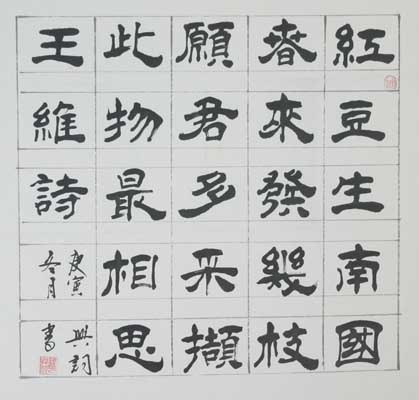 紅豆生南國
春來發幾枝
願君多采擷
此物最相思
王維詩
庚寅
冬月
書